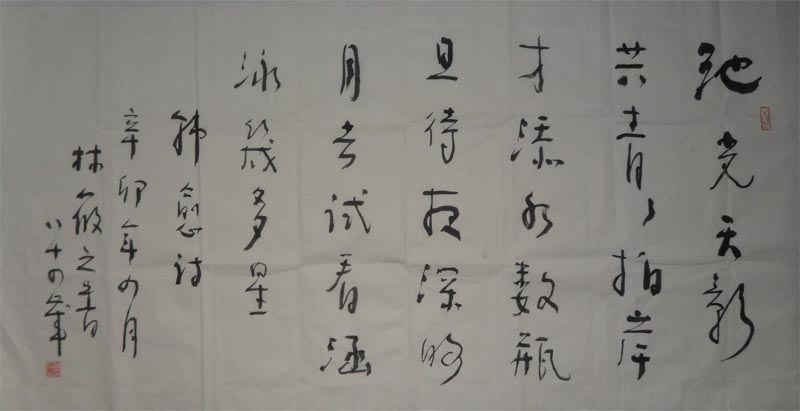 池光天影
共青青拍岸
才添水数瓶
且待夜深明
月去试看涵
泳几多星
韩愈诗
辛卯年四月
林筱之书
八十四岁